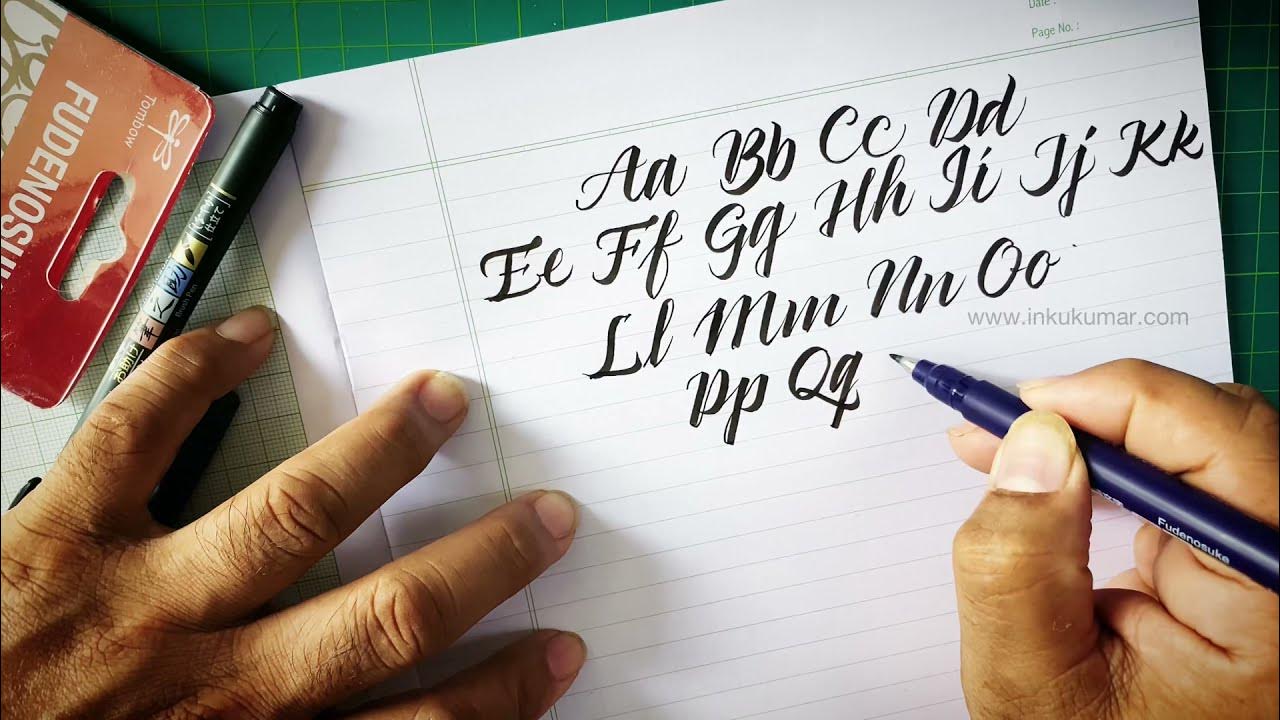 Date :
Page No. :
Aa Bb Cc Dd
Ee Ff Gg Hh Ii Jj Kk
Ll Mm Nn Oo
Pp Qq
www.inkukumar.com
Tombow
FUDENOSU
Brush Pen
Fudenosuke